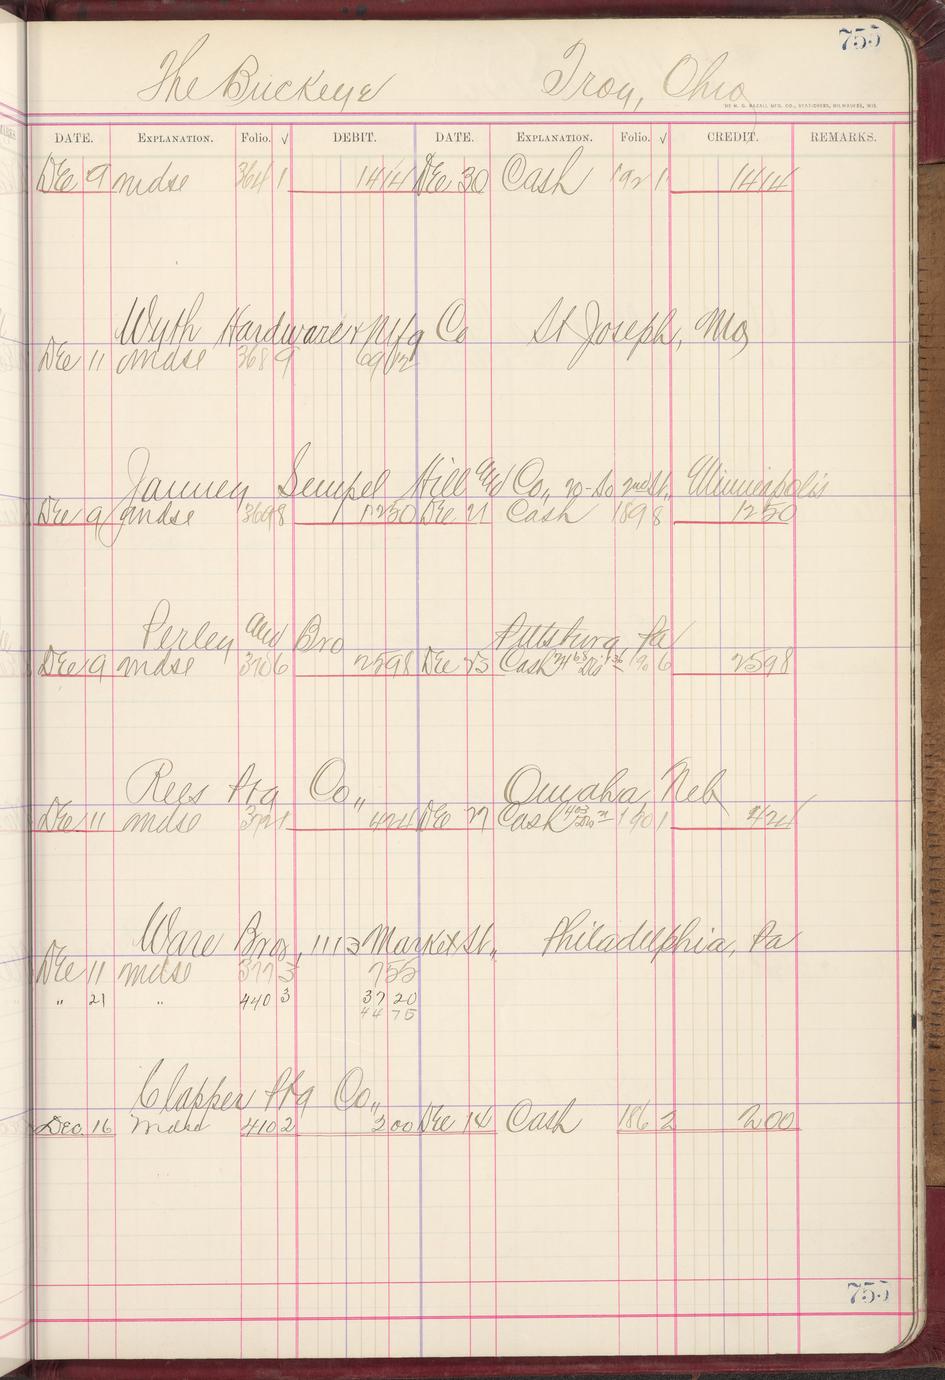 755
The Buckeye Troy, Ohio
THE H. G. RAZALL MFG. CO., STATIONERS, MILWAUKEE, WIS.
DATE. EXPLANATION. Folio. √ DEBIT. DATE. EXPLANATION. Folio. √ CREDIT. REMARKS.
Dec 9 mdse 364 1 1414 Dec 30 Cash 192 1 1414
Wyth Hardware & Mfg Co St Joseph, Mo
Dec 11 mdse 368 9 69 12
Janney Sempel Hill and Co,, 20-So 2nd St. Minneapolis
Dec 9 mdse 369 8 1250 Dec 21 Cash 189 8 1250
Perley and Bro Pittsburg Pa
Dec 9 mdse 370 6 2598 Dec 23 Cash Dis 6 2598
Rees Ptg Co,, Omaha, Neb
Dec 11 mdse 372 1 424 Dec 27 Cash 403 Dis 21 190 1 424
Ware Bros, 1113 Market St,, Philadelphia, Pa
Dec 11 mdse 377 3 755
" 21 " 440 3 37 20
44 75
Clapper Ptg Co,,
Dec. 16 Mdse 410 2 200 Dec 14 Cash 186 2 200
755